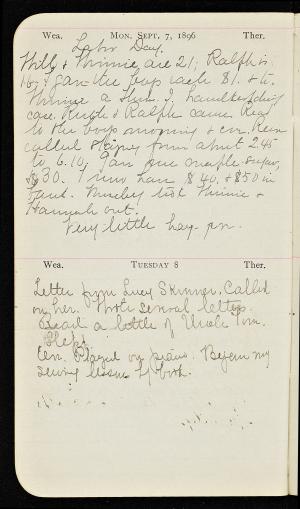 Wea. MON. SEPT. 7, 1896 Ther.
Labor Day.
Will & Minnie are 21; Ralph is
16. I gave the boys each $1. & to
Minnie a
case. Ruth & Ralph came. Read
to the boys morning & en.
called & stayed from about 2.45
to 6.10, gave me maple sugar,
$30. I now have $40. & $50 in
bank. took Minnie &
Hannah out.
Very little hay-
Wea. TUESDAY 8 Ther.
Letter from Lucy Skinner. Called
on her. Wrote several letters.
Read a little of Uncle Tom.
Slept.
Ev. Played on piano. Began my
sewing lesson of both.